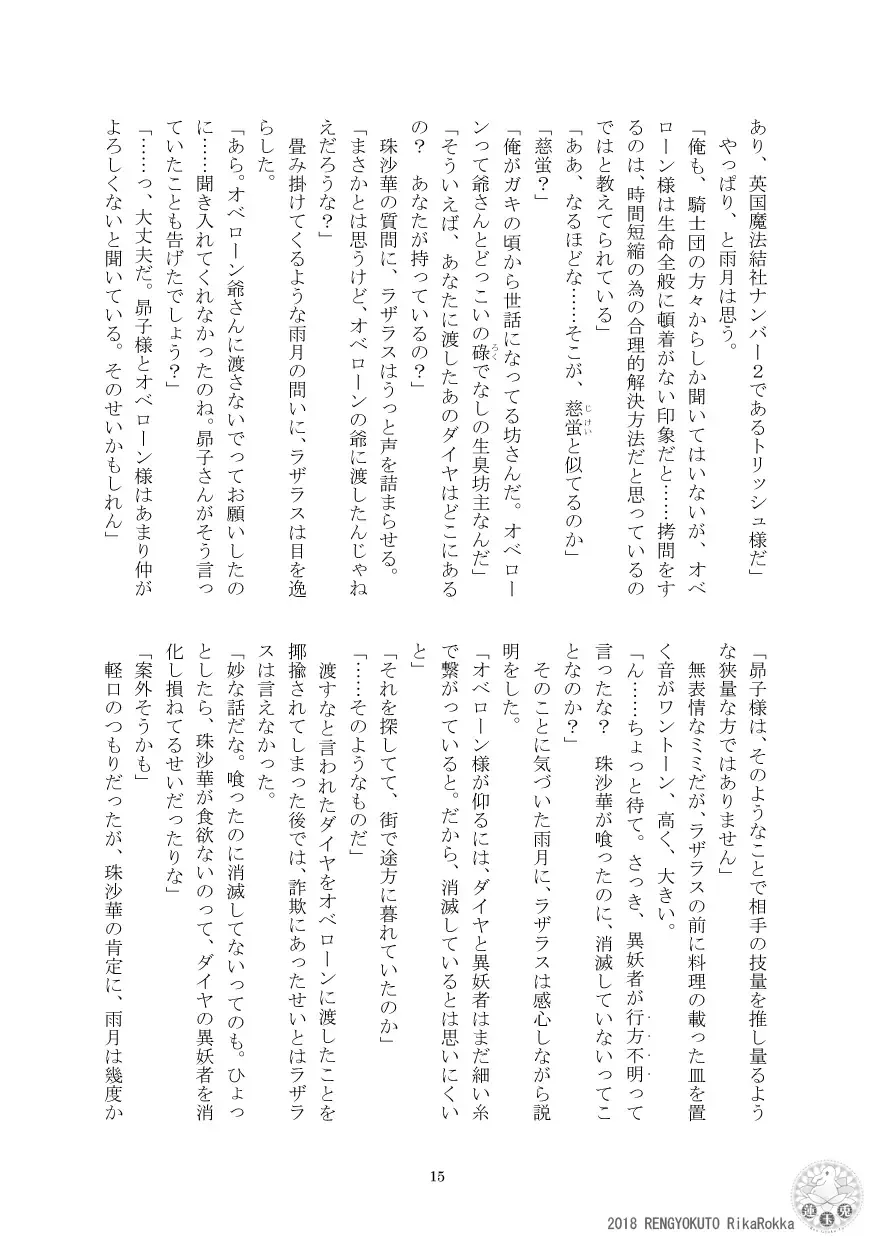 あり、英国魔法結社ナンバー２であるトリッシュ様だ」
　やっぱり、と雨月は思う。
「俺も、騎士団の方々からしか聞いてはいないが、オベ
ローン様は生命全般に頓着がない印象だと……拷問をす
るのは、時間短縮の為の合理的解決方法だと思っているの
ではと教えてられている」
「ああ、なるほどな……そこが、慈蛍と似てるのか」
じけい
「慈蛍？」
「俺がガキの頃から世話になってる坊さんだ。オベロー
ンって爺さんとどっこいの碌でなしの生臭坊主なんだ」
ろく
「そういえば、あなたに渡したあのダイヤはどこにある
の？　あなたが持っているの？」
　珠沙華の質問に、ラザラスはうっと声を詰まらせる。
「まさかとは思うけど、オベローンの爺に渡したんじゃね
えだろうな？」
　畳み掛けてくるような雨月の問いに、ラザラスは目を逸
らした。
「あら。オベローン爺さんに渡さないでってお願いしたの
に……聞き入れてくれなかったのね。昴子さんがそう言っ
ていたことも告げたでしょう？」
「……っ、大丈夫だ。昴子様とオベローン様はあまり仲が
よろしくないと聞いている。そのせいかもしれん」
「昴子様は、そのようなことで相手の技量を推し量るよう
な狭量な方ではありません」
　無表情なミミだが、ラザラスの前に料理の載った皿を置
く音がワントーン、高く、大きい。
「ん……ちょっと待て。さっき、異妖者が行方不明って
言ったな？　珠沙華が喰ったのに、消滅していないってこ
となのか？」
　そのことに気づいた雨月に、ラザラスは感心しながら説
明をした。
「オベローン様が仰るには、ダイヤと異妖者はまだ細い糸
で繋がっていると。だから、消滅しているとは思いにくい
と」
「それを探してて、街で途方に暮れていたのか」
「……そのようなものだ」
　渡すなと言われたダイヤをオベローンに渡したことを
揶揄されてしまった後では、詐欺にあったせいとはラザラ
スは言えなかった。
「妙な話だな。喰ったのに消滅してないってのも。ひょっ
としたら、珠沙華が食欲ないのって、ダイヤの異妖者を消
化し損ねてるせいだったりな」
「案外そうかも」
　軽口のつもりだったが、珠沙華の肯定に、雨月は幾度か
15
2018 RENGYOKUTO RikaRokka
蓮玉兎